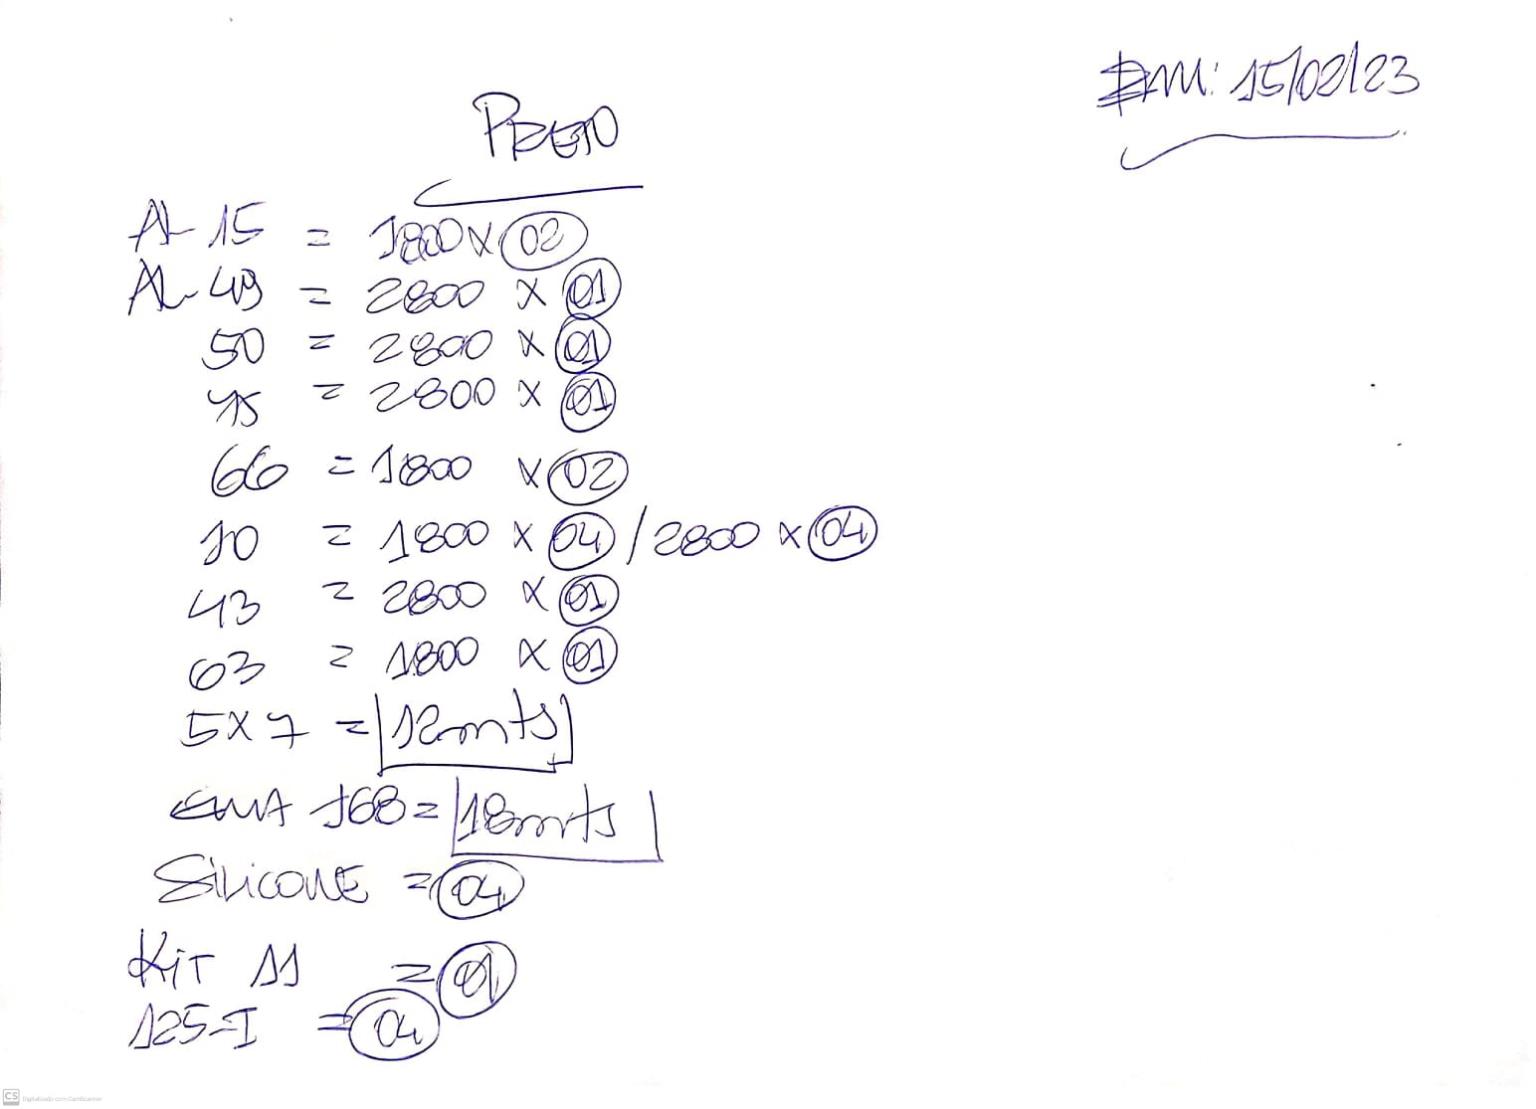 EM: 15/02/23
PRETO
AL 15 = 1800 X 02
AL-49 = 2800 X 01
50 = 2800 X 01
45 = 2800 X 01
66 = 1800 X 02
10 = 1800 X 04 / 2800 X 04
43 = 2800 X 01
63 = 1800 X 01
5X7 = 12mts
168 = 18mts
SILICONE = 04
KIT 11 = 01
125-I = 04
CS Digitalizado com CamScanner